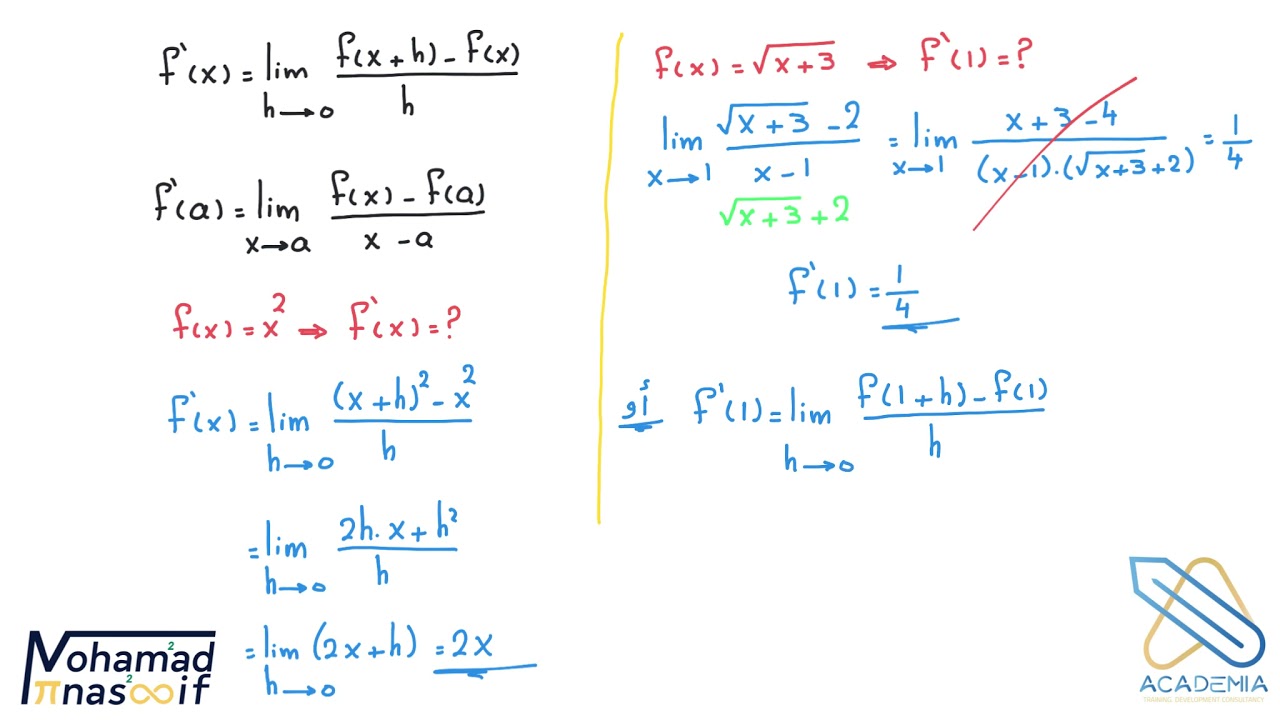 f`(x) = lim h→0 (f(x+h) - f(x)) / h
f`(a) = lim x→a (f(x) - f(a)) / (x - a)
f(x) = x² ⇒ f`(x) = ?
f`(x) = lim h→0 ((x+h)² - x²) / h
= lim h→0 (2h·x + h²) / h
= lim h→0 (2x+h) = 2x
f(x) = √(x+3) ⇒ f`(1) = ?
lim x→1 (√(x+3) - 2) / (x - 1) = lim x→1 (x+3-4) / ((x-1)·(√(x+3)+2)) = 1/4
√(x+3) + 2
f`(1) = 1/4
أو f`(1) = lim h→0 (f(1+h) - f(1)) / h
Mohama²d
πnas²∞if
ACADEMIA
TRAINING, DEVELOPMENT CONSULTANCY